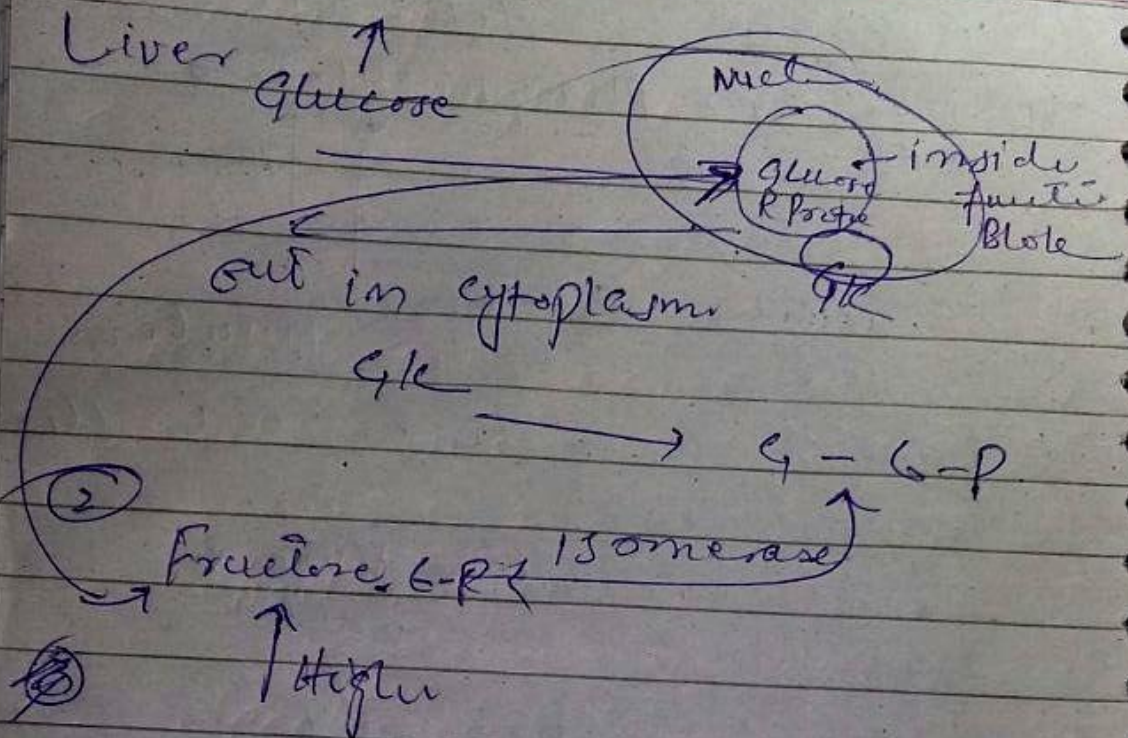 Liver ↑
Glucose
Nucl
Glucose
R Prote
inside
GK
out in cytoplasm
GK → G-6-P
2
Fructose 6-P
Isomerase
↑ High